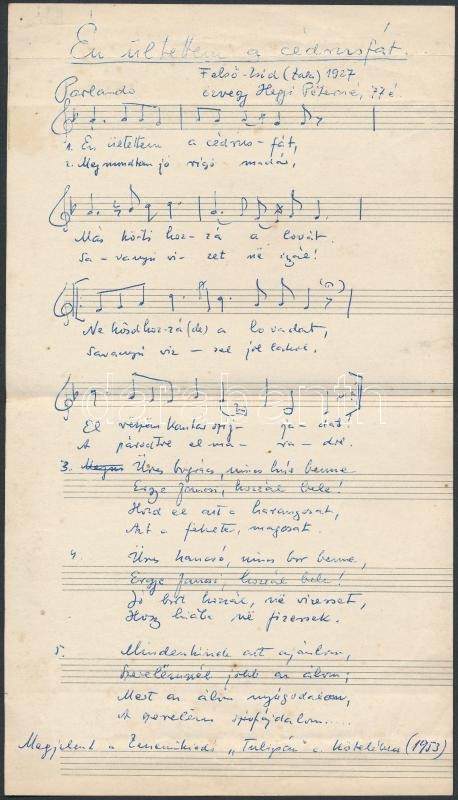 Én ültettem a cédrusfát...
Felső-Zsid (Zala) 1927
Parlando özvegy Hegyi Péterné, 77 é.
1. Én ültettem a cédrus-fát,
2. Megmondtam jó rigó madár,
Más köti hoz-zá a lovát.
Sa-vanyú vi-zet né igzál!
Ne kösd hoz-zá (de) a lovadat,
Savanyú viz-zel jól laksz.
darabanth
El kantár
A párodtól el ma-ra-dsz.
3. Üres bogrács, nincs hús benne
Eregy Jancsi, hozzál bele!
Hozd el azt a harangosat,
Azt a fekete, magosat.
4. Üres kancsó, nincs bor benne,
Eregy Jancsi, hozzál bele!
Jó bort hozzál, né vizesset,
Hogy hiába né fizessek.
5. Mindenkinek azt ajánlom,
Szerelemnél jobb az álom;
Mert az álom nyugodalom,
A szerelem szívfájdalom.....
Megjelent a Zeneműkiadó "Tulipán" c. kötetében (1953)